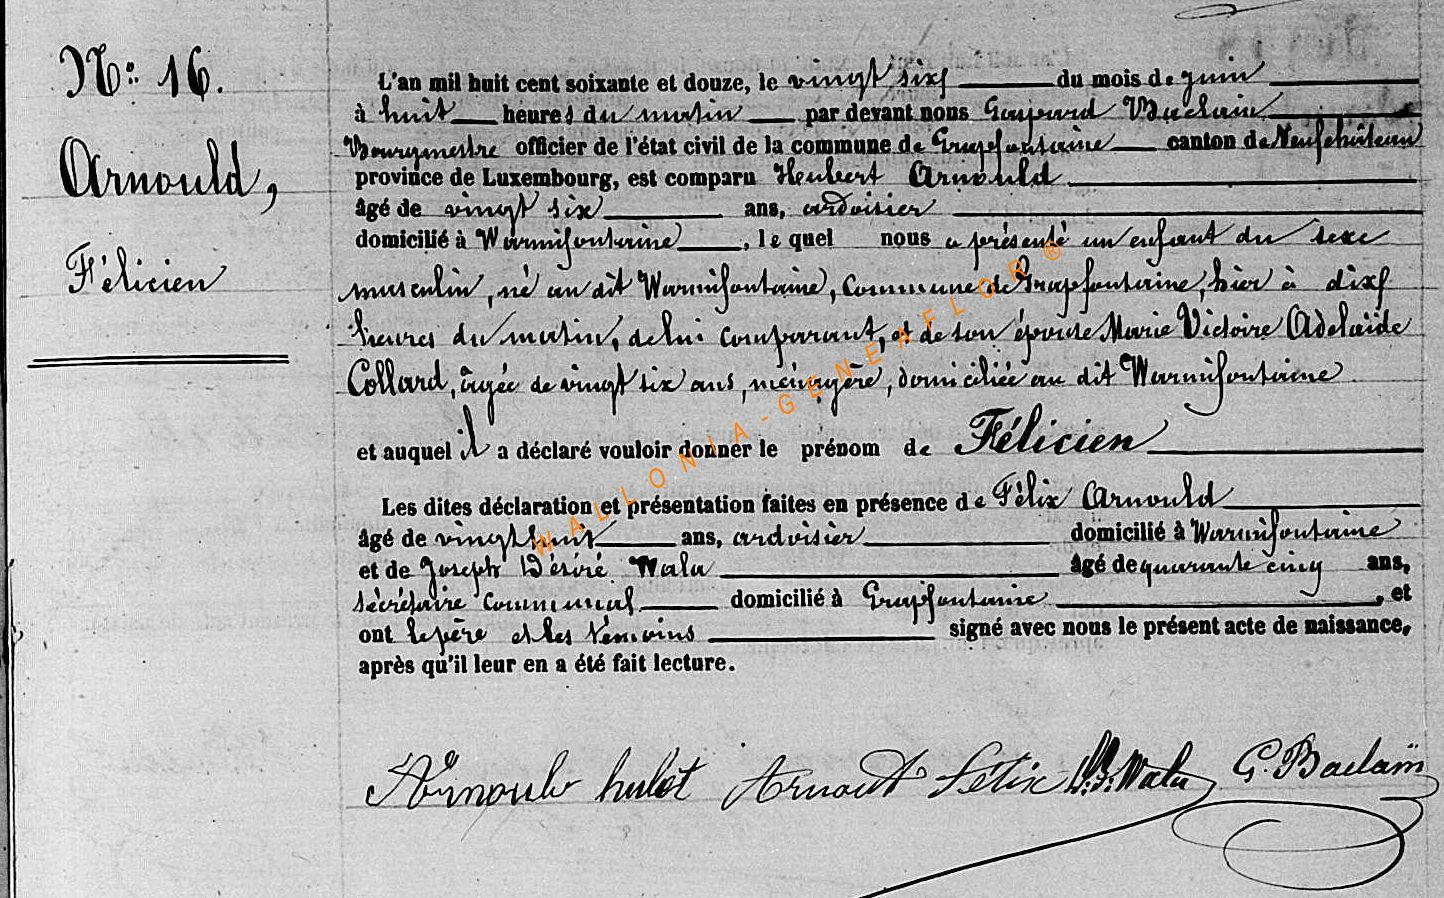 N° 16.
Arnould,
Félicien
L'an mil huit cent soixante et douze, le vingt six du mois de juin
à huit heures du matin par devant nous Gaspard
Bourgmestre officier de l'état civil de la commune de Grapfontaine canton de Neufchâteau
province de Luxembourg, est comparu Hubert Arnould
âgé de vingt six ans, ardoisier
domicilié à Warmifontaine, lequel nous a présenté un enfant du sexe
masculin, né au dit Warmifontaine, Commune de Grapfontaine, hier à dix
heures du matin, de lui comparant, et de son épouse Marie Victoire Adelaïde
Collard, âgée de vingt six ans, ménagère, domiciliée au dit Warmifontaine.
et auquel il a déclaré vouloir donner le prénom de Félicien
Les dites déclaration et présentation faites en présence de Félix Arnould
âgé de vingt huit ans, ardoisier domicilié à Warmifontaine
et de Joseph Désiré Wala âgé de quarante cinq ans,
sécrétaire communal domicilié à Grapfontaine, et
ont le père et les témoins signé avec nous le présent acte de naissance,
après qu'il leur en a été fait lecture.
Félix Wala G.
WALLONIA-GENEAFLOR ®